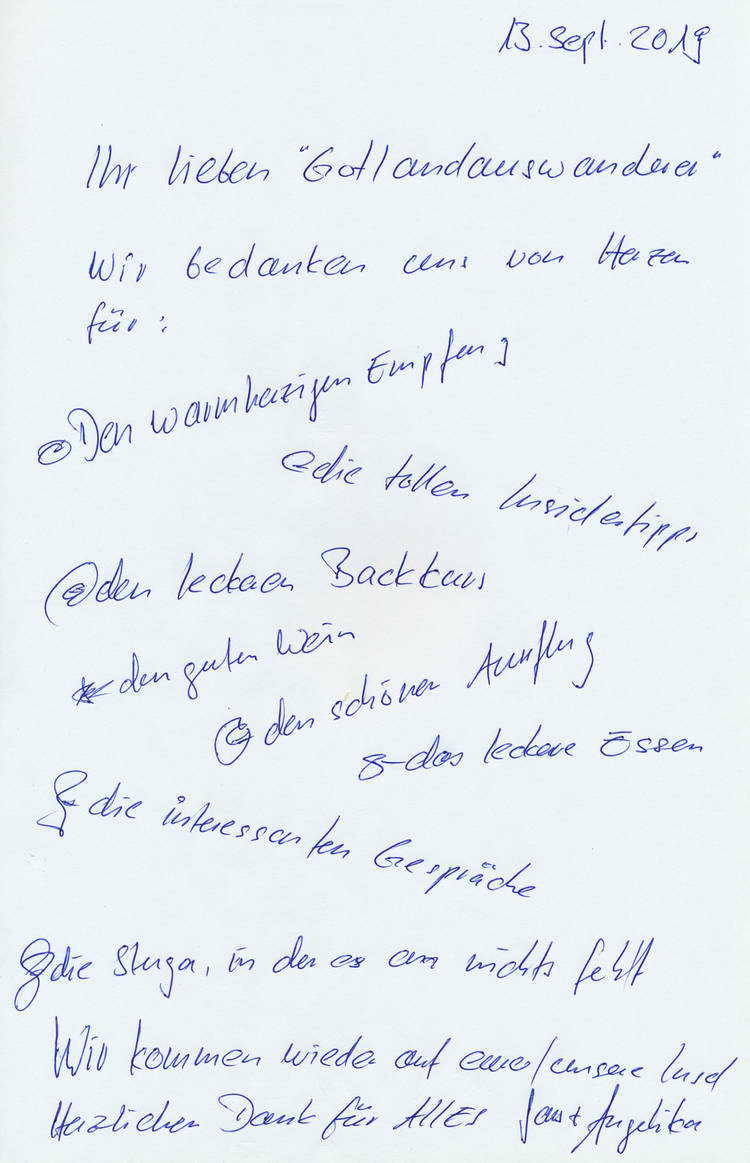 13. Sept. 2019
Ihr lieben "Gotlandauswanderer"
Wir bedanken uns von Herzen
für:
Den warmherzigen Empfang
die tollen Insidertipps
den leckeren Backkurs
den guten Wein
den schönen Ausflug
das leckere Essen
die interessanten Gespräche
die Stuga, in der es an nichts fehlt
Wir kommen wieder auf eure/unsere Insel
Herzlichen Dank für Alles Jens + Angelika